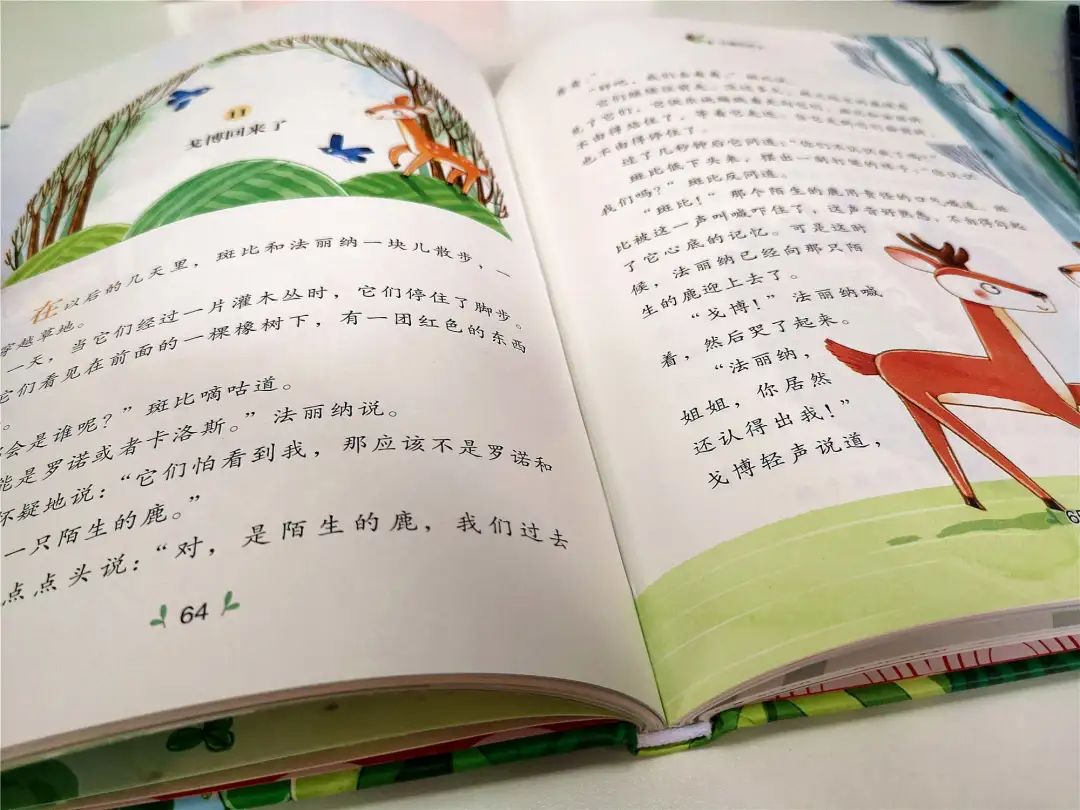 11
戈博回来了
在以后的几天里，斑比和法丽纳一块儿散步，一
穿越草地。
一天，当它们经过一片灌木丛时，它们停住了脚步。
它们看见在前面的一棵橡树下，有一团红色的东西
。
会是谁呢？”斑比嘀咕道。
能是罗诺或者卡洛斯。”法丽纳说。
怀疑地说：“它们怕看到我，那应该不是罗诺和
一只陌生的鹿。”
点点头说：“对，是陌生的鹿，我们过去
64
看看。”
“好吧，我们去看看，”
不由得站住了，
也不由得停住了。
过了几秒钟后它问道：“你们不认识我了吗？”
斑比低下头来，摆出一副打架的样子，
我们吗？”斑比反问道。
“斑比！”那个陌生的鹿用责怪的口气喊道，斑
比被这一声叫喊吓住了，这声音好熟悉，不由得勾起
了它心底的记忆。可是这时
候，法丽纳已经向那只陌
生的鹿迎上去了。
“戈博！”法丽纳喊
着，然后哭了起来。
“法丽纳，
姐姐，你居然
还认得出我！”
戈博轻声说道，
65